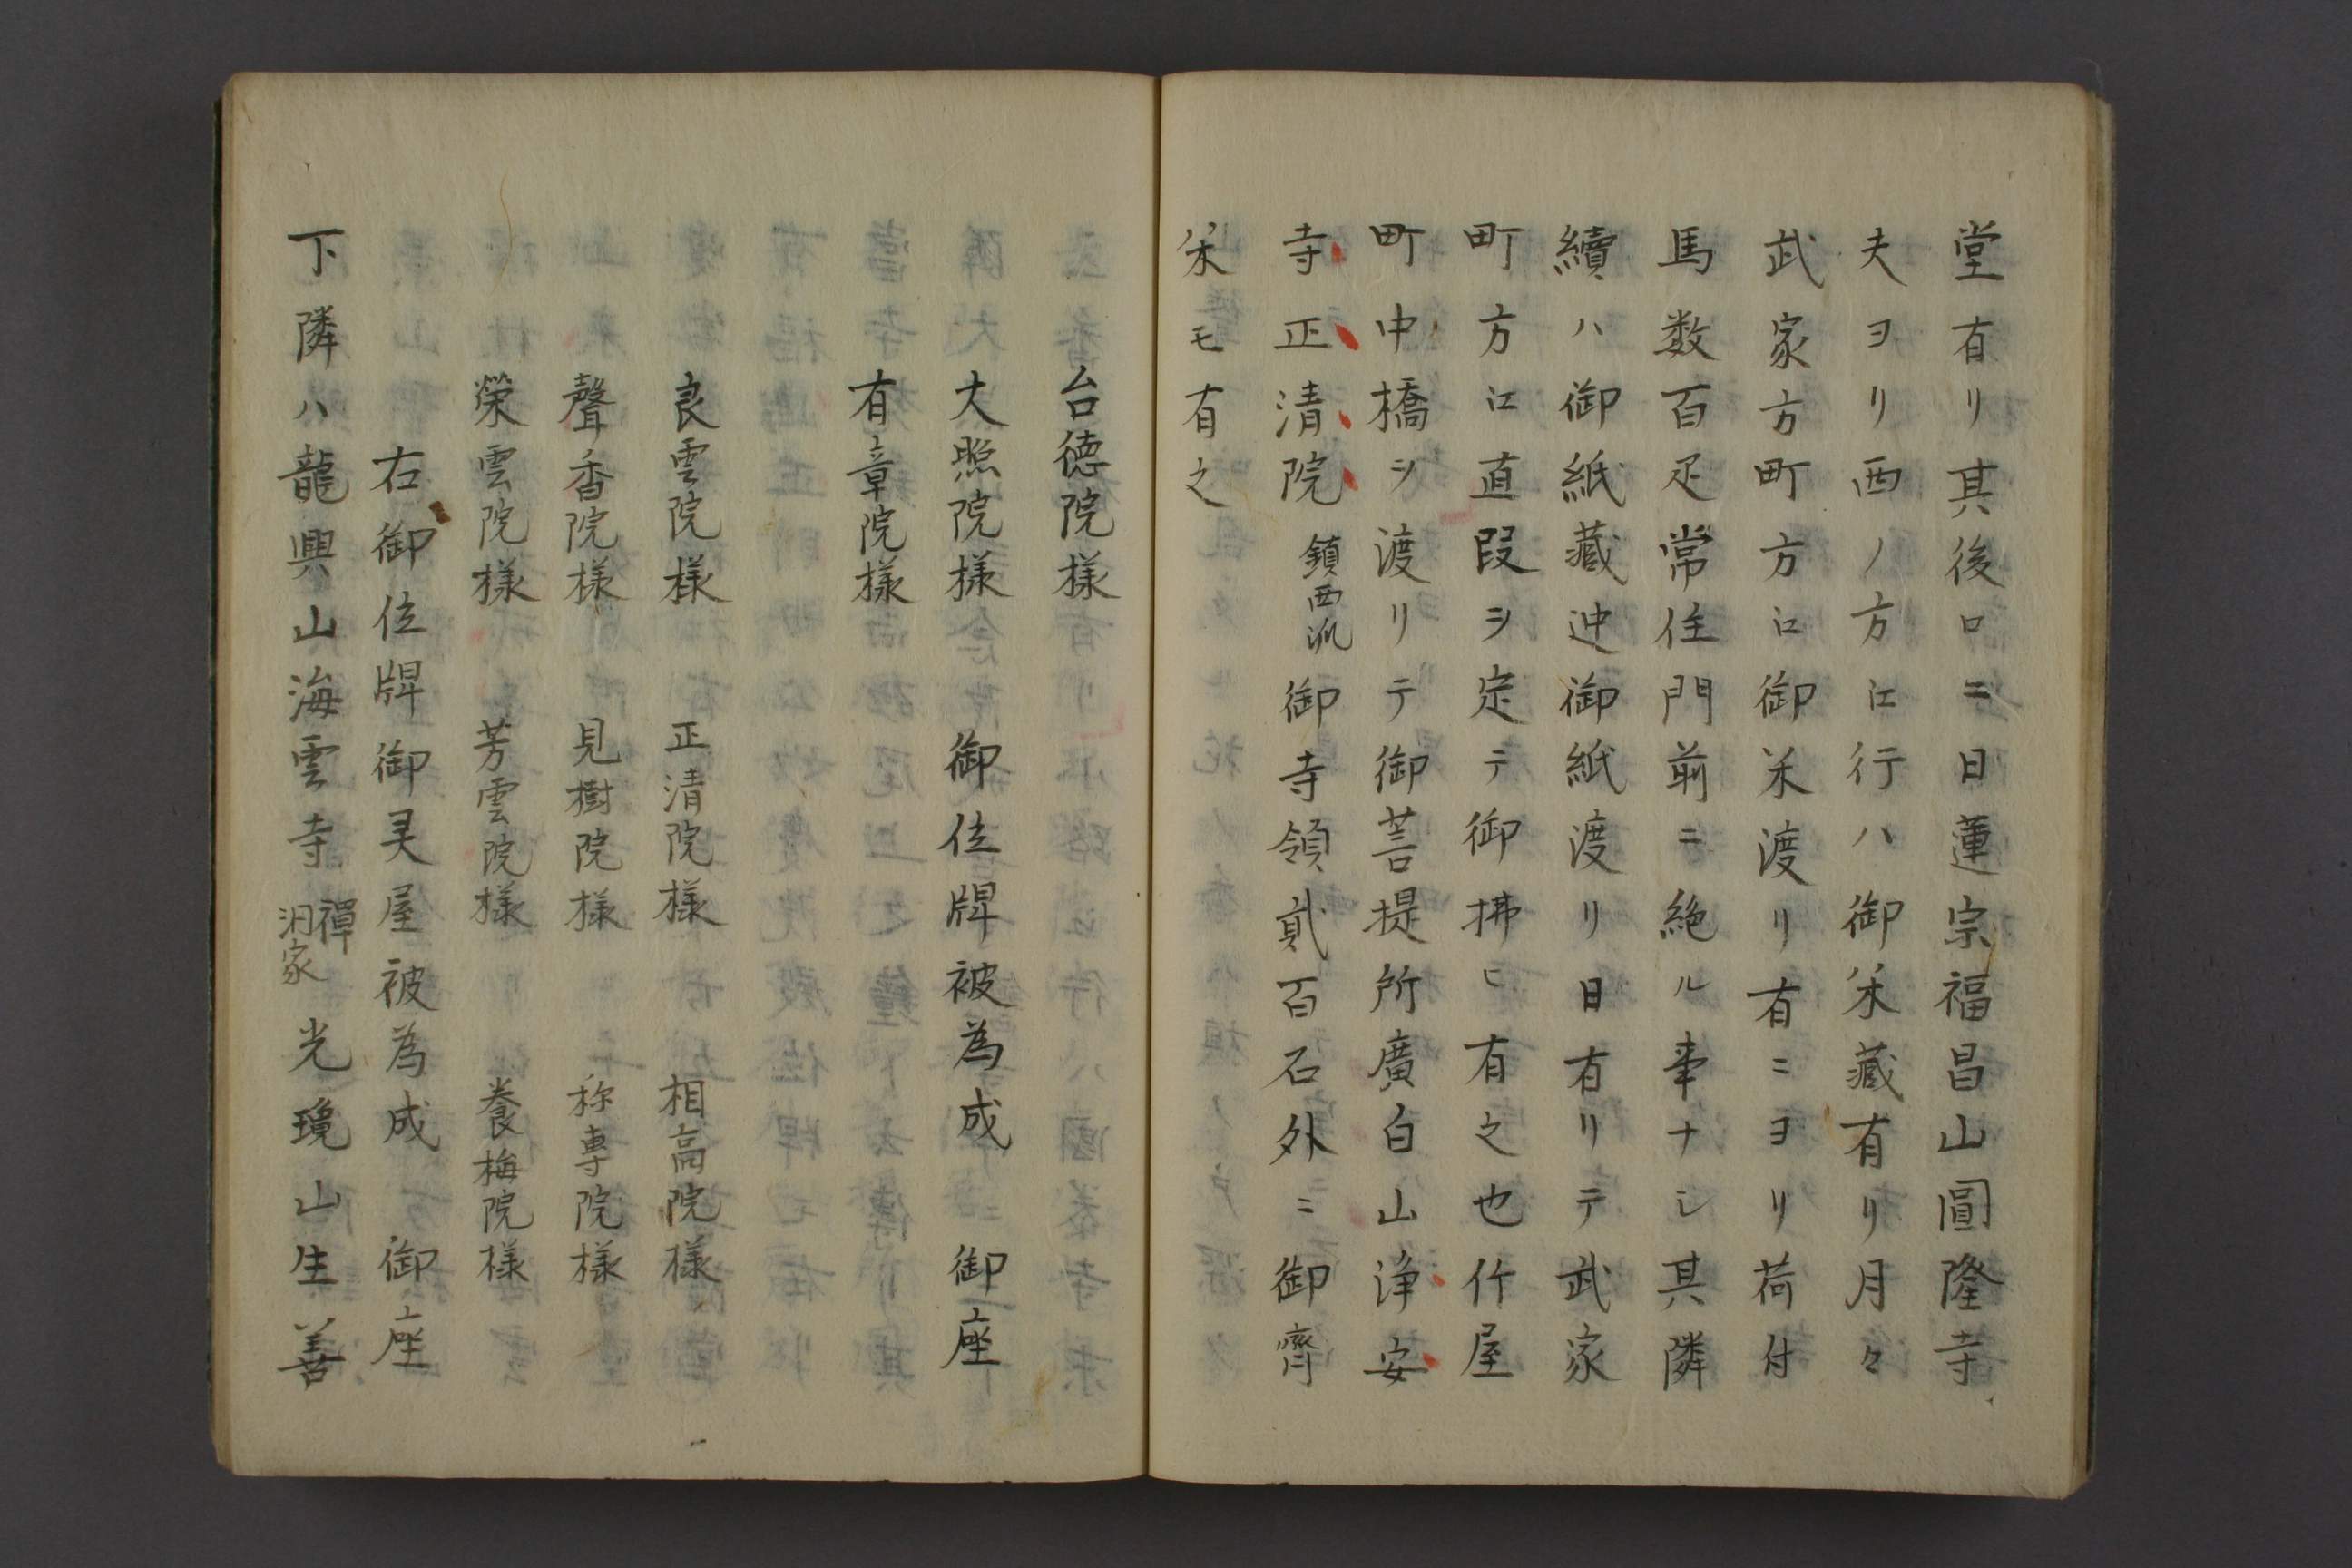 堂有リ其後ロニ日蓮宗福昌山圓隆寺
夫ヨリ西ノ方江行ハ御米藏有リ月々
武家方町方江御米渡リ有ニヨリ荷付
馬数百疋常住門前ニ絶ル事ナシ其隣
續ハ御紙藏迚御紙渡リ日有リテ武家
町方江直段ヲ定テ御拂ヒ有之也竹屋
町中橋ヲ渡リテ御菩提所廣白山浄安
寺正清院鎮西派御寺領貳百石外ニ御齊
米モ有之
台徳院様
大照院様 御位牌被為成 御座
有章院様
良雲院様 正清院様 相高院様
聲香院様 見樹院様 称専院様
榮雲院様 芳雲院様 養梅院様
右御位牌御灵屋被為成 御座
下隣ハ龍興山海雲寺禪洞家光環山生善